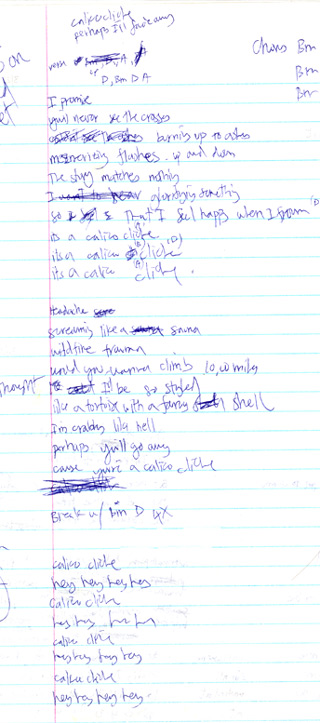 calico cliche
perhaps I'll fade away
verse
D, Bm D A
Chorus Bm
Bm
Bm
I promise
you'll never see the crosses
burning up to ashes
mesmerizing flashes. up and down
The story matches nothing
something
so that I feel happy when I frown (D)
its a calico cliche
its a calico cliche (D)
its a calico cliche.
Headache
screaming like a sauna
wildfire trauma
would you wanna climb 10,000 miles
I'd be so styled
like a tortoise with a fancy shell
I'm crabby like hell
perhaps you'll go away
cause you're a calico cliche
Break w/ Bm D 4X
calico cliche
hey hey hey hey
calico cliche
hey hey hey hey
calico cliche
hey hey hey hey
calico cliche
hey hey hey hey